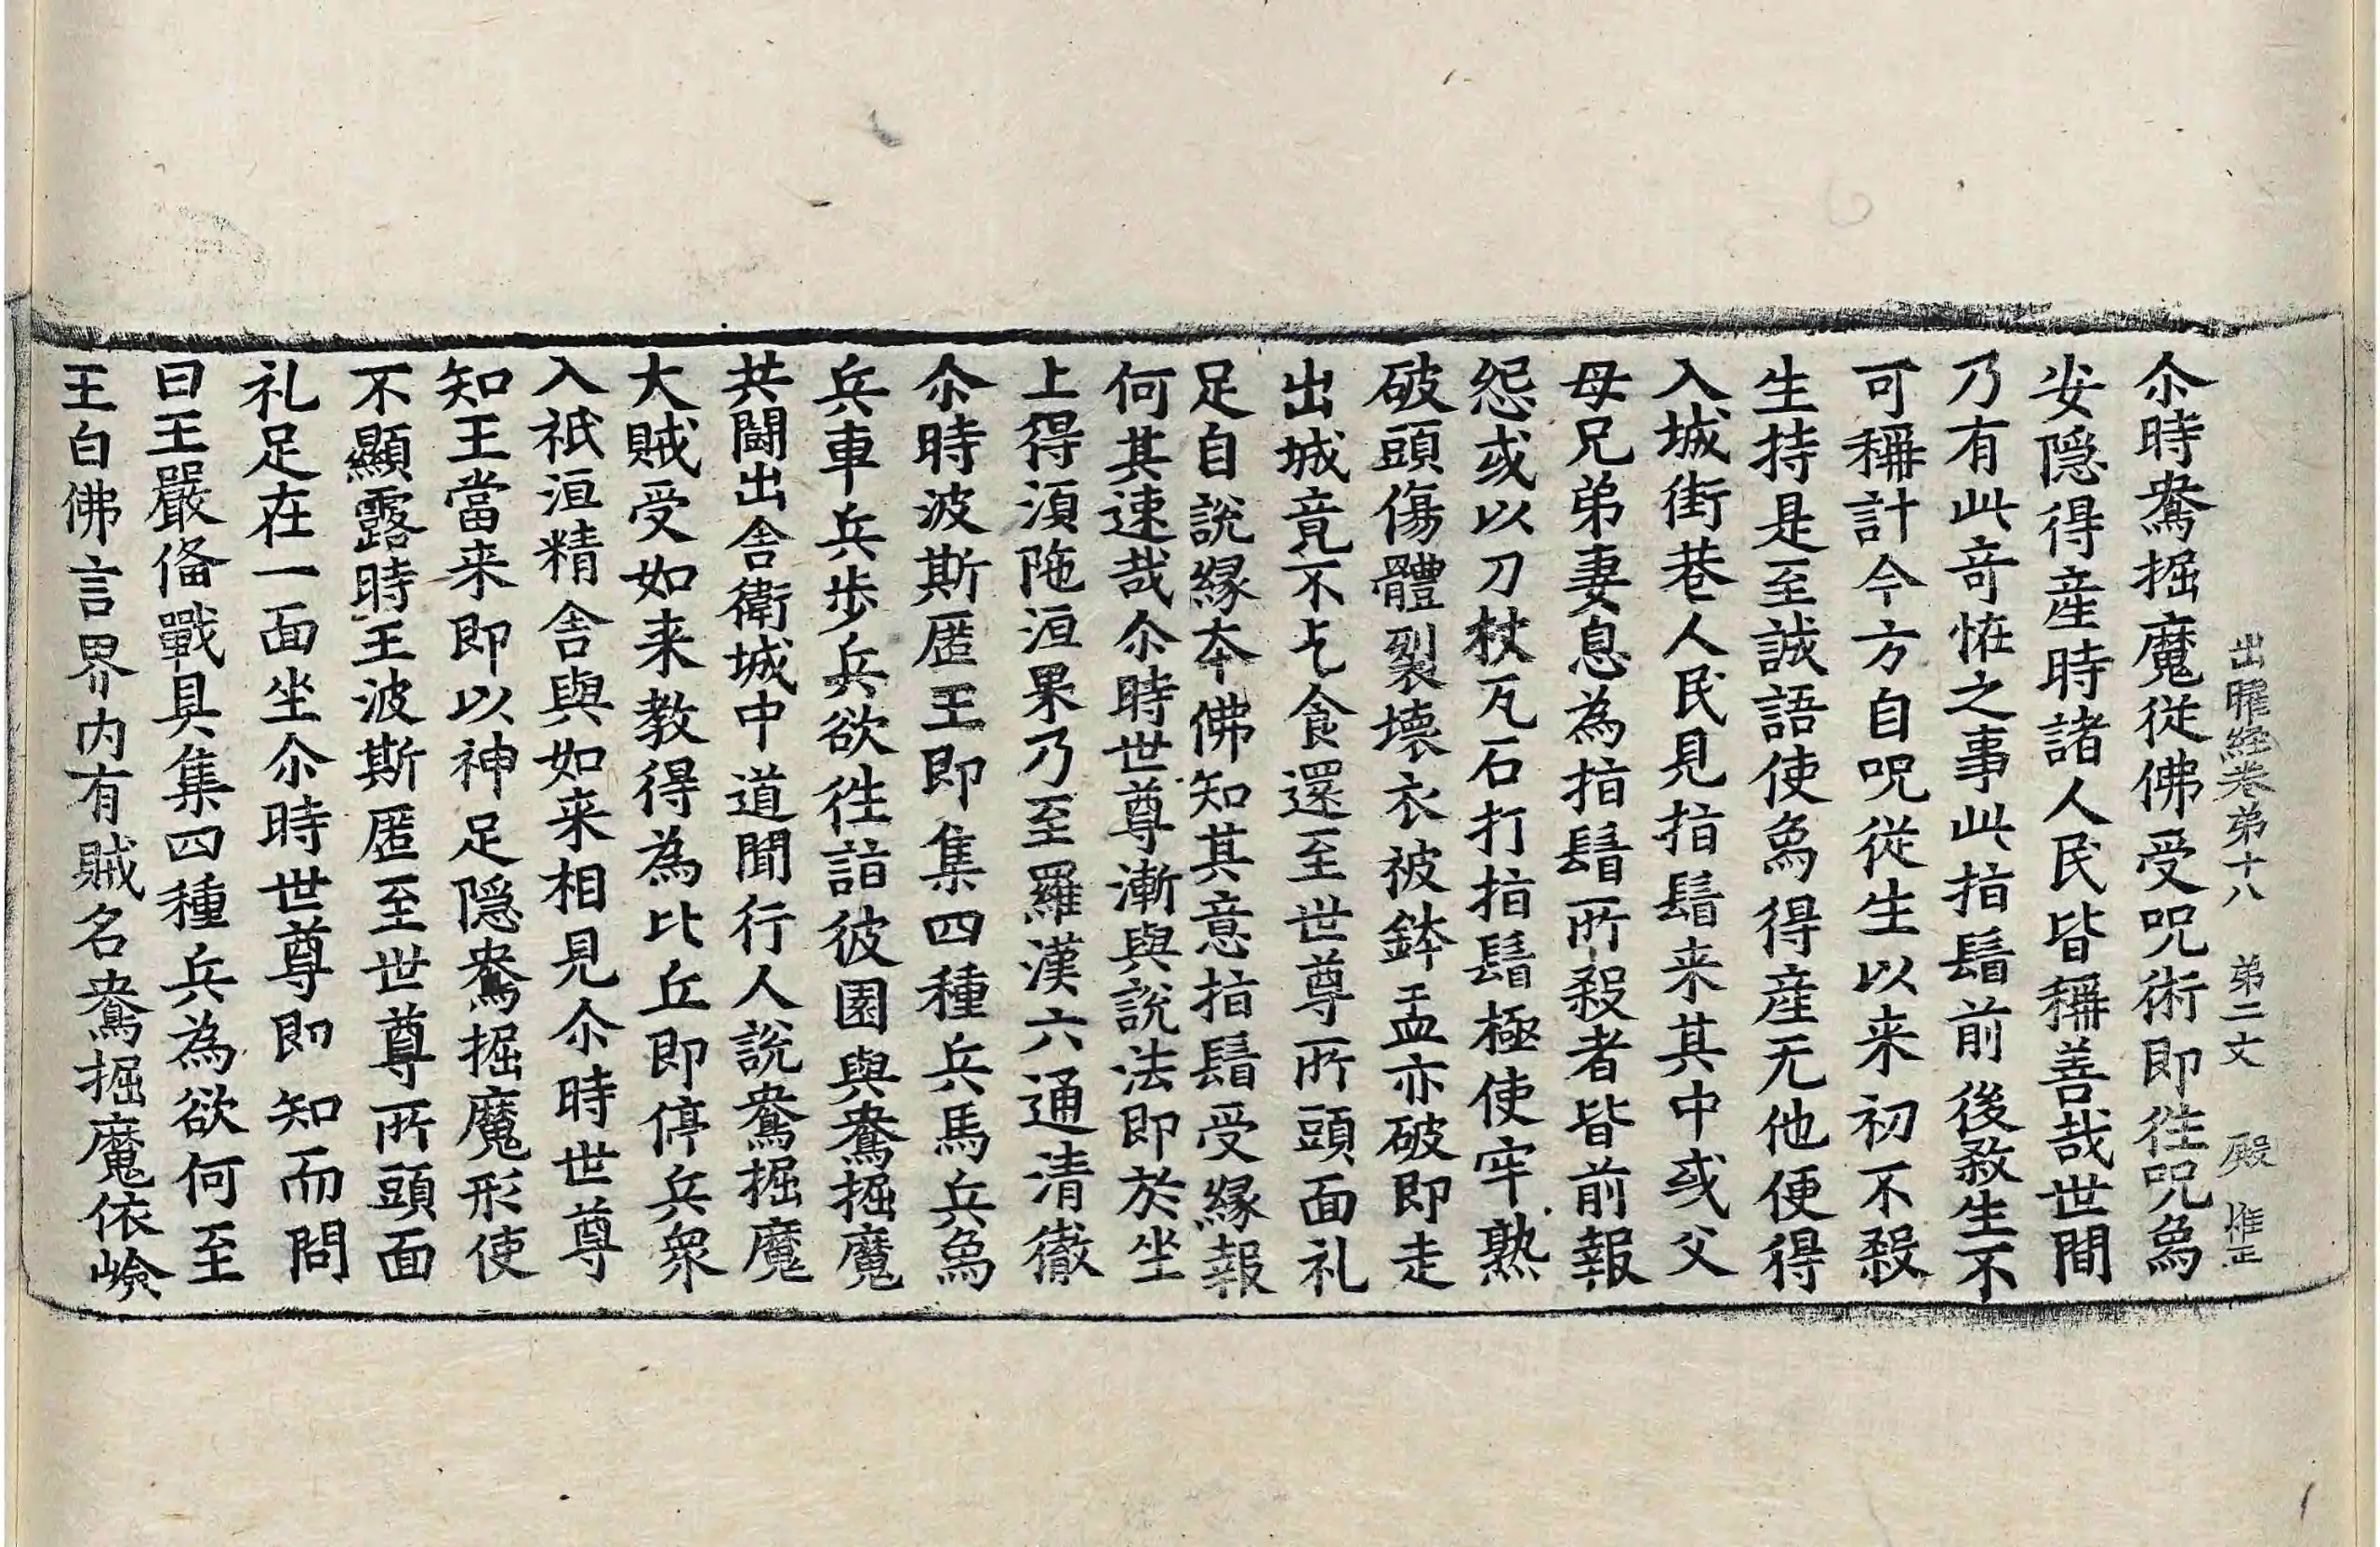 出曜経巻第十八 第二丈 殿 惟正
尒時鴦掘魔從佛受呪術即徃呪象
安隠得産時諸人民皆稱善哉世間
乃有此竒恠之事此指鬘前後煞生不
可稱計今方自呪從生以来初不殺
生持是至誠語使象得産无他便得
入城街巷人民見指鬘来其中或父
母兄弟妻息為指鬘所殺者皆前報
怨或以刀杖瓦石打指鬘極使牢熟
破頭傷體裂壊衣被鉢盂亦破即走
出城竟不乞食還至世尊所頭面礼
足自說縁本佛知其意指鬘受縁報
何其速哉尒時世尊漸與說法即於坐
上得湏陁洹果乃至羅漢六通清徹
尒時波斯匿王即集四種兵馬兵象
兵車兵歩兵欲徃詣彼園與鴦掘魔
共鬪出舎衛城中道聞行人說鴦掘魔
大賊受如来教得為比丘即停兵衆
入祇洹精舎與如来相見尒時世尊
知王當来即以神足隠鴦掘魔形使
不顯露時王波斯匿至世尊所頭面
礼足在一面坐尒時世尊即知而問
曰王嚴俻戰具集四種兵為欲何至
王白佛言界内有賊名鴦掘魔依嶮